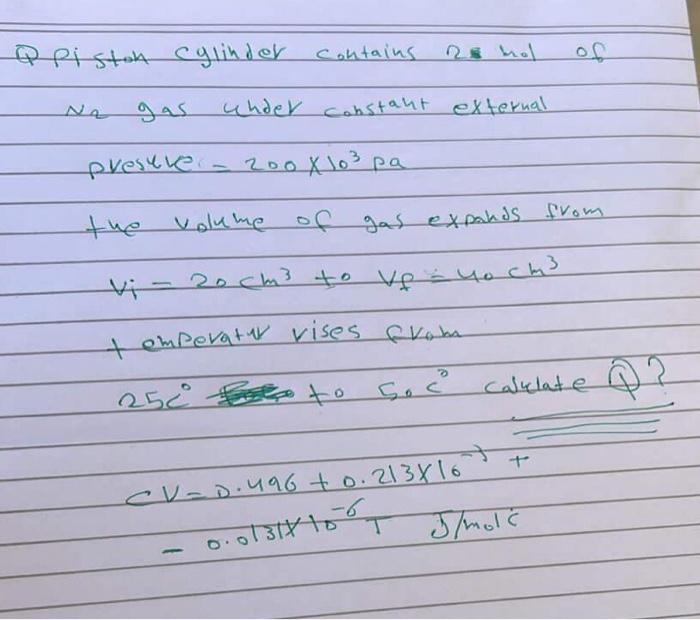 Q Piston cylinder contains 2 mol of
N2 gas under constant external
presure = 200 X 10³ pa
the volume of gas expands from
Vi = 20 cm³ to Vf = 40 cm³
temperatur rises from
25c° to 50c° calculate Q?
CV = 0.496 + 0.213X10⁻³ T
- 0.0131X10⁻⁶ T J/mol c